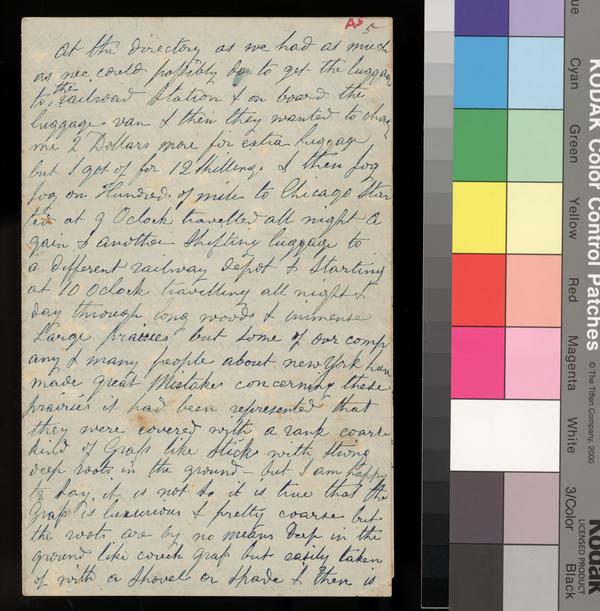 A5 5
At the directory as we had as much
as we could possibly do to get the luggage
to the railroad Station & on board the
luggage van & then they wanted to charge
me 2 Dollars more for extra luggage
but I got of for 12 Shillings & then jog
jog on Hundreds of miles to Chicago Star
ted at 9 Oclock travelled all night A
gain & another Shifting luggage to
a different railway depot & Starting
at 10 Oclock travelling all night &
day through long woods & immense
Large prairies but some of our comp
any & many people about new York have
made great Mistakes concerning these
prairies it had been represented that
they were covered with a rank coarse
kind of Grass like Sticks with strong
deep roots in the ground – but I am happy
to Say it is not So it is true that the
Grass is luxurious & pretty coarse but
the roots are by no means Deep in the
ground like couch grass but easily taken
of with a Shovel or Spade & then is
KODAK Color Control Patches
© The Tiffen Company, 2000
Kodak
LICENSED PRODUCT
ue
Cyan
Green
Yellow
Red
Magenta
White
3/Color
Black